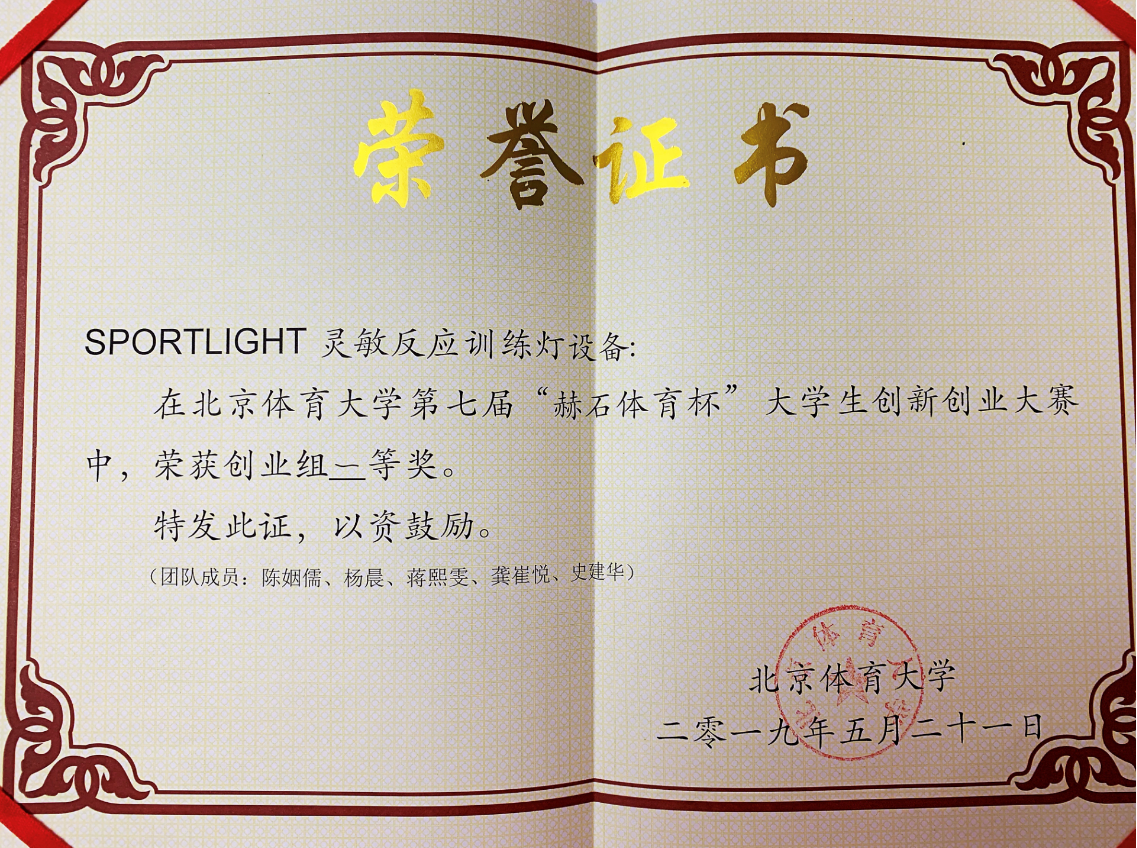 荣誉证书
SPORTLIGHT 灵敏反应训练灯设备:
在北京体育大学第七届“赫石体育杯”大学生创新创业大赛
中，荣获创业组二等奖。
特发此证，以资鼓励。
（团队成员：陈姻儒、杨晨、蒋熙雯、龚崔悦、史建华）
北京体育大学
北京体育大学
二零一九年五月二十一日